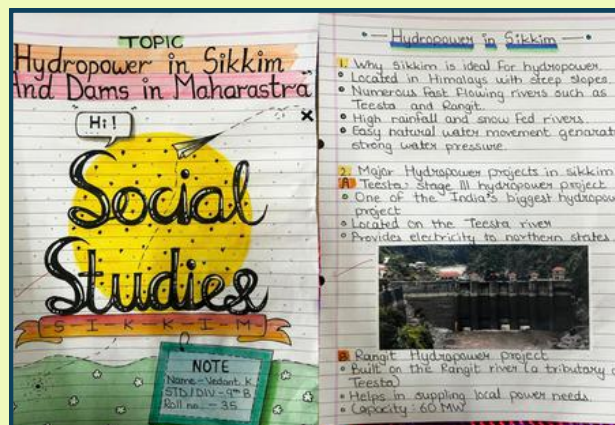 TOPIC
Hydropower in Sikkim
And Dams in Maharastra
Hi!
Social
Studies
S-I-K-K-I-M
NOTE
Name - Vedant. K.
STD/DIV - 9th B
Roll no. - 35
Hydropower in Sikkim
1. Why Sikkim is ideal for hydropower.
Located in Himalays with steep slopes
Numerous Fast flowing rivers such as
Teesta and Rangit.
High rainfall and snow fed rivers.
Easy natural water movement genarat
strong water pressure.
2. Major Hydropower projects in sikkim
A Teesta stage III hydropower project
One of the India's biggest hydropow
project
Located on the Teesta river
Provides electricity to northern states
B Rangit Hydropower project
Built on the Rangit river (a tributary o
Teesta)
Helps in suppling local power needs.
Capacity: 60 MW